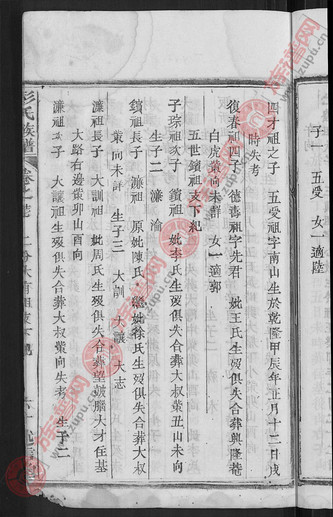 子一 五受 女一適陸
四才祖之子 五受祖字南山生於乾隆甲辰年正月十二日戌
時失考
復春祖四子 德壽祖字先君 妣王氏生歿俱失合葬興隆菴
白虎䇿向未詳 女一適郭
五世鎖祖支下紀
子琮祖次子 鑌祖 妣李氏生歿俱失合葬大叔䇿丑山未向
生子二 濂 淪
鑌祖長子 濂祖 原妣陳氏繼妣徐氏生歿俱失合葬大叔
䇿向未詳 生子三 大訓 大讓 大志
濂祖長子 大訓祖 妣周氏生歿俱失合葬望皷腦大才任基
大路右邊䇿卯山酉向
濂祖次子 大讓祖生歿俱失合葬大叔䇿向失考 生子二
彭氏族譜
家譜网
www.jiapu.tv